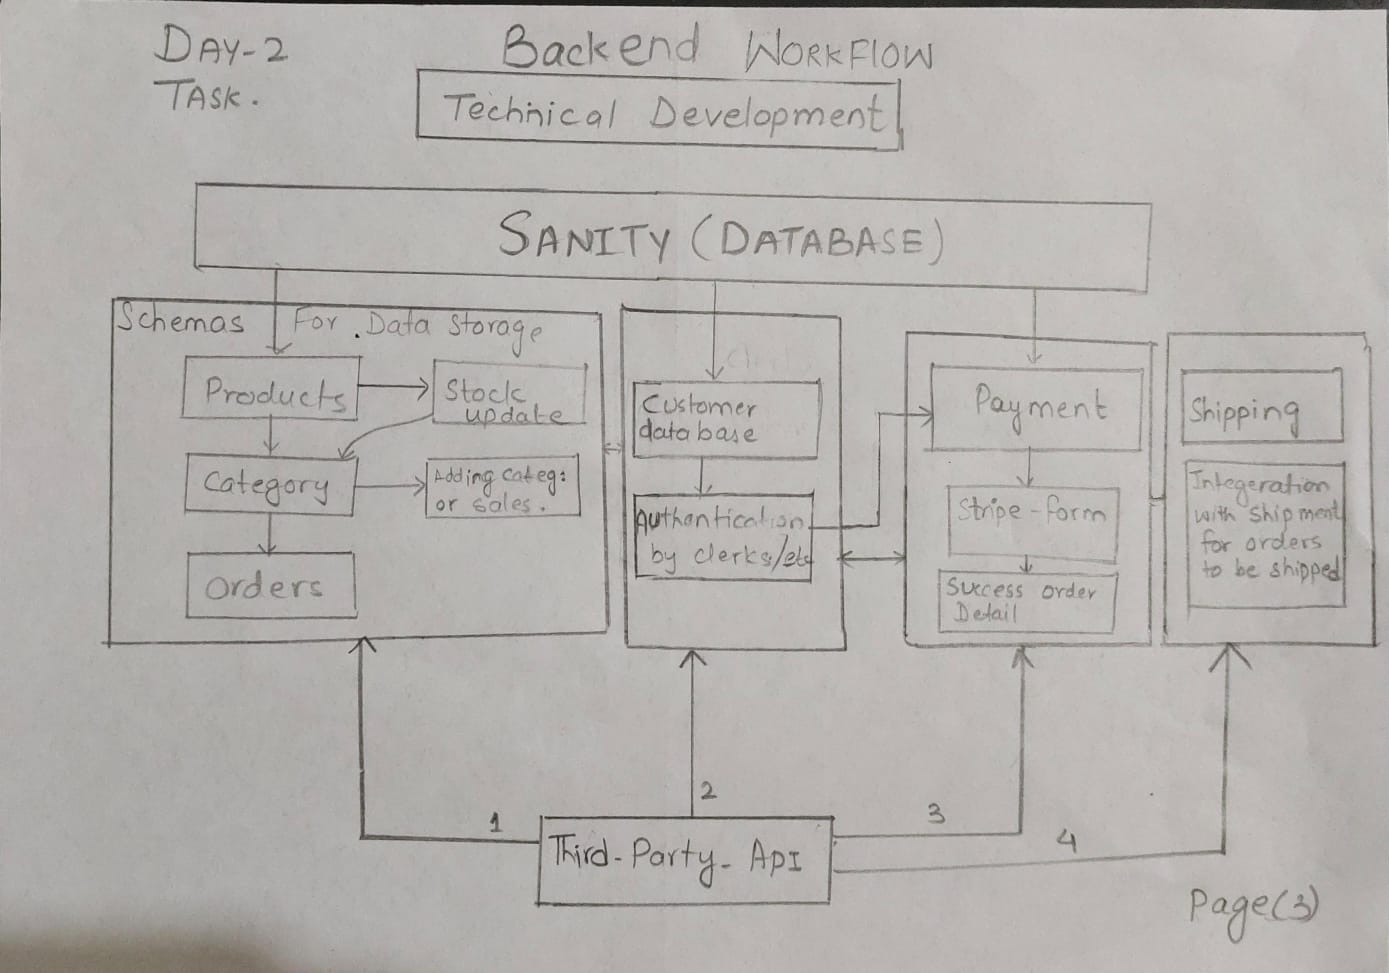 DAY-2
TASK.
Backend WORKFLOW
Technical Development
SANITY (DATABASE)
Schemas For .Data Storage
Products
Stock
update
Category
Adding Categ:
or sales.
Orders
Customer
database
Authantication
by clerks/etc
Payment
Stripe-form
Success order
Detail
Shipping
Integeration
with shipment
for orders
to be shipped
1
2
3
4
Third-Party-API
Page(3)